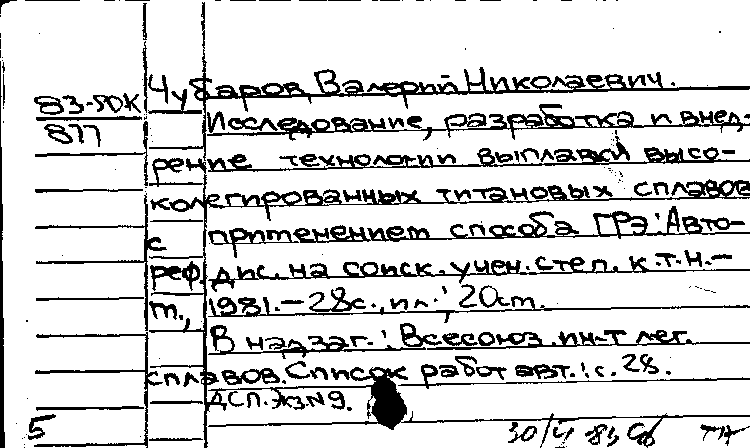 Чубаров, Валерий Николаевич.
83-5ДК
877
Исследование, разработка и внед-
рение технологии выплавки высо-
колегированных титановых сплавов
с применением способа ГРЭ: Авто-
реф. дис. на соиск. учен. степ. к.т.н.-
м., 1981.-28с., ил.; 20см.
В надзаг.: Всесоюз. ин-т лег.
сплавов. Список работ авт.: с. 28.
ДСП. Экз N9.
5
30/V 83